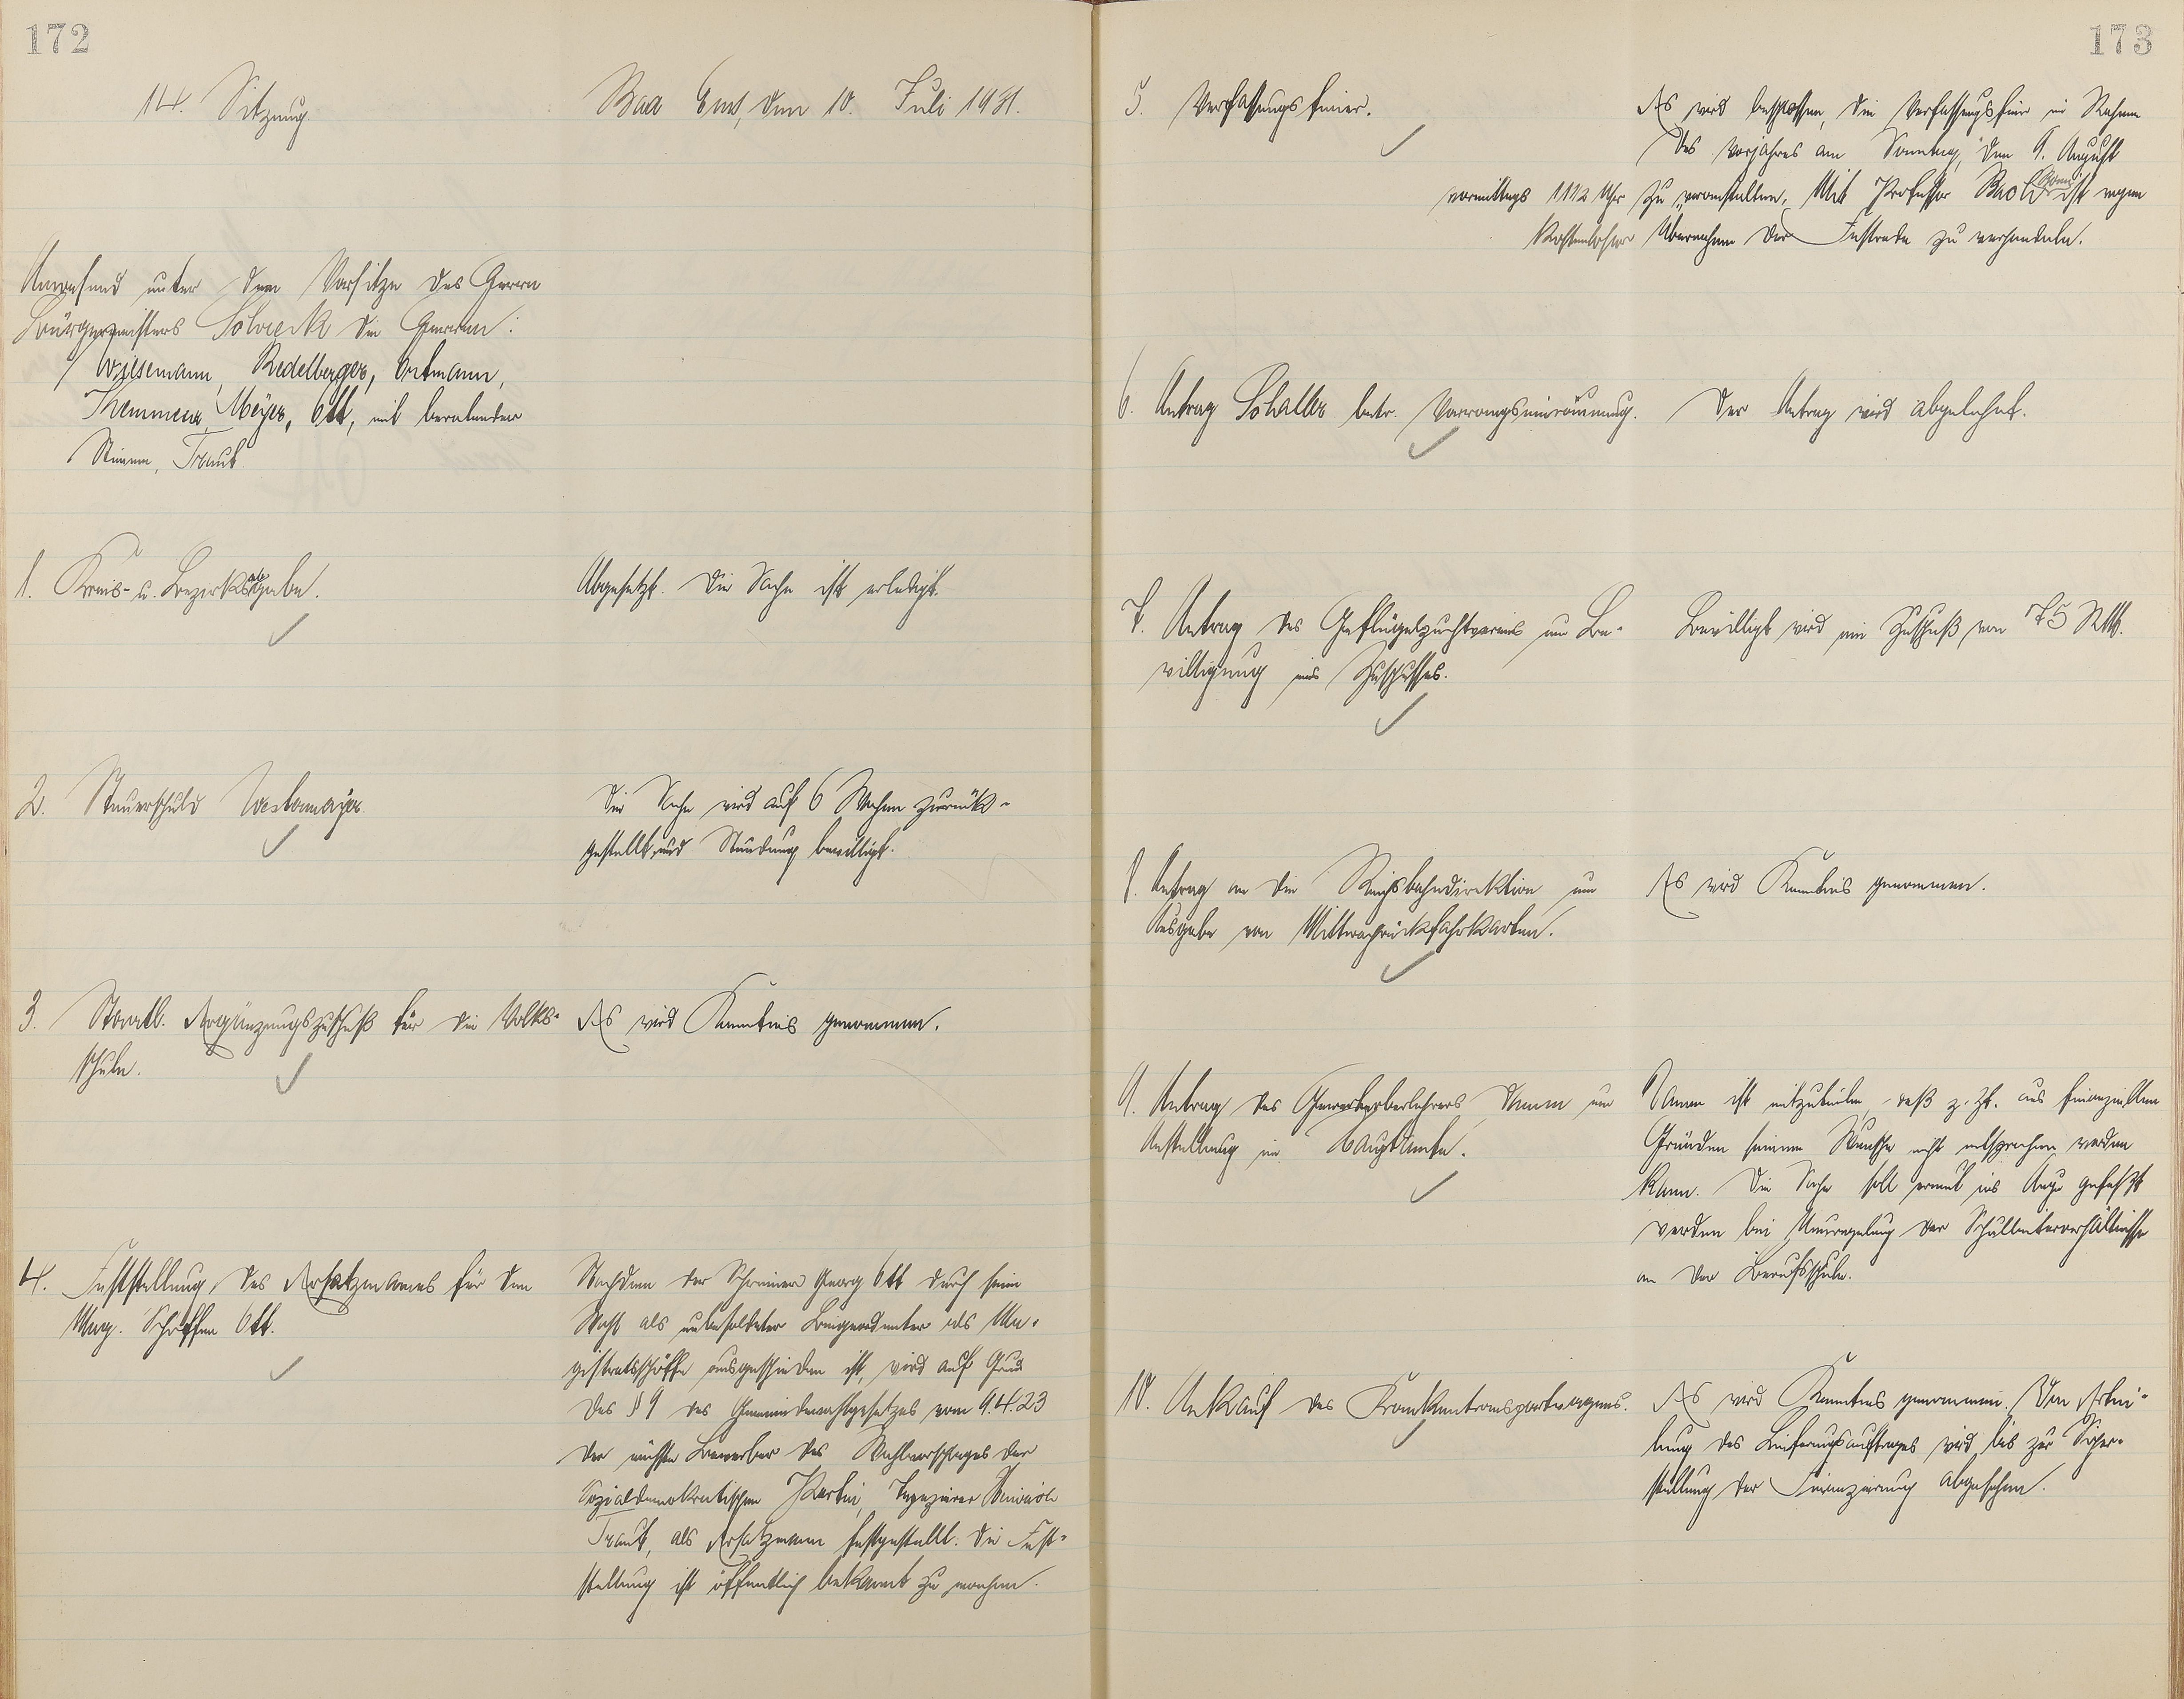 172
14. Sitzung.
Bad Ems, den 10. Juli 1931.
Anwesend unter dem Vorsitze des Herrn
Bürgermeisters die Herren:
Wiesemann, Redelberger, Ortmann,
Themmen, Meyer, Ott, mit beratender
Stimme, Traub
1. Kreis- u. Bezirksabgabe.
Abgesetzt. Die Sache ist erledigt.
2. Steuerschuld Westemayer
Die Sache wird auf 6 Wochen zurück-
gestellt und Stundung bewilligt.
3. Staatl. Ergänzungszuschuß für die Volks-
schule.
Es wird Kenntnis genommen.
4. Feststellung des Ersatzmannes für den
Mag. Schöffen Ott.
Nachdem der Schreiner Georg Ott durch seine
Wahl als unbesoldeter Beigeordneter als Ma-
gistratsschöffe ausgeschieden ist, wird auf Grund
des § 9 des Gemeindewahlgesetzes vom 9.4.23
der nächste Bewerber des Wahlvorschlages der
Sozialdemokratischen Partei, Ingenieur Heinrich
Traub, als Ersatzmann festgestellt. Die Fest-
stellung ist öffentlich bekannt zu machen.
173
5. Verfassungsfeier.
Es wird beschlossen, die Verfassungsfeier im Rahmen
des Vorjahres am Sonntag, den 9. August
vormittags 11 1/2 Uhr zu veranstalten. Mit Professor ist wegen
kostenloser Übernahme der Festrede zu verhandeln.
6. Antrag Schaller betr. Vorrangseinräumung.
Der Antrag wird abgelehnt.
7. Antrag des Geflügelzuchtvereins um Be-
willigung eines Zuschusses.
Bewilligt wird ein Zuschuß von 75 RM.
8. Antrag an die Reichsbahndirektion um
Ausgabe von Mittwochrückfahrkarten.
Es wird Kenntnis genommen.
9. Antrag des Gewerbeoberlehrers Damm um
Anstellung im Hauptamte.
Damm ist mitzuteilen, daß z. Zt. aus finanziellen
Gründen seinem Wunsche nicht entsprochen werden
kann. Die Sache soll erneut ins Auge gefaßt
werden bei Neuregelung der Schulleiterverhältnisse
an der Berufsschule.
10. Ankauf des Krankentransportwagens.
Es wird Kenntnis genommen. Von Ertei-
lung des Lieferungsauftrages wird bis zur Sicher-
stellung der Finanzierung abgesehen.